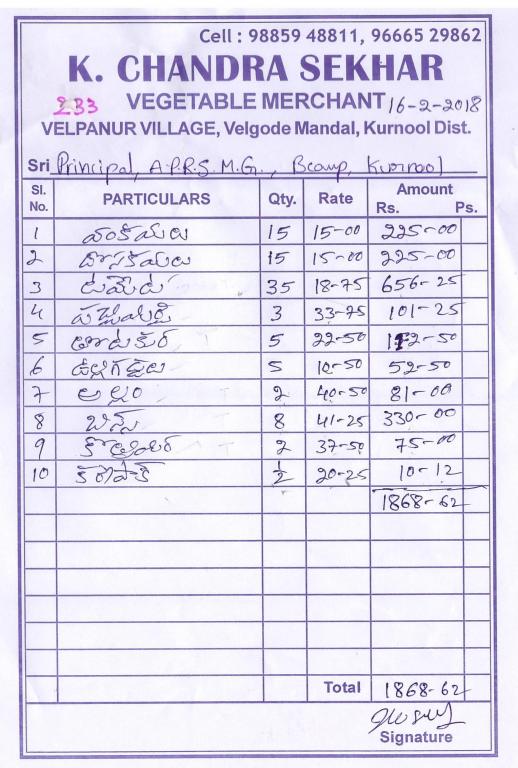 Cell : 98859 48811, 96665 29862
K. CHANDRA SEKHAR
233 VEGETABLE MERCHANT 16-2-2018
VELPANUR VILLAGE, Velgode Mandal, Kurnool Dist.
Sri Principal, A.P.R.S. M.G., Bcamp, Kurnool
Sl. No. PARTICULARS Qty. Rate Amount Rs. Ps.
1 వంకాయలు 15 15-00 225-00
2 దోసకాయలు 15 15-00 225-00
3 టమేట 35 18-75 656-25
4 పచ్చిమిర్చి 3 33-75 101-25
5 తోటకూర 5 22-50 112-50
6 ఉల్లిగడ్డలు 5 10-50 52-50
7 అల్లం 2 40-50 81-00
8 బీన్స్ 8 41-25 330-00
9 కొత్తిమీర 2 37-50 75-00
10 కరేపాక్ ½ 20-25 10-12
1868-62
Total 1868-62
Signature